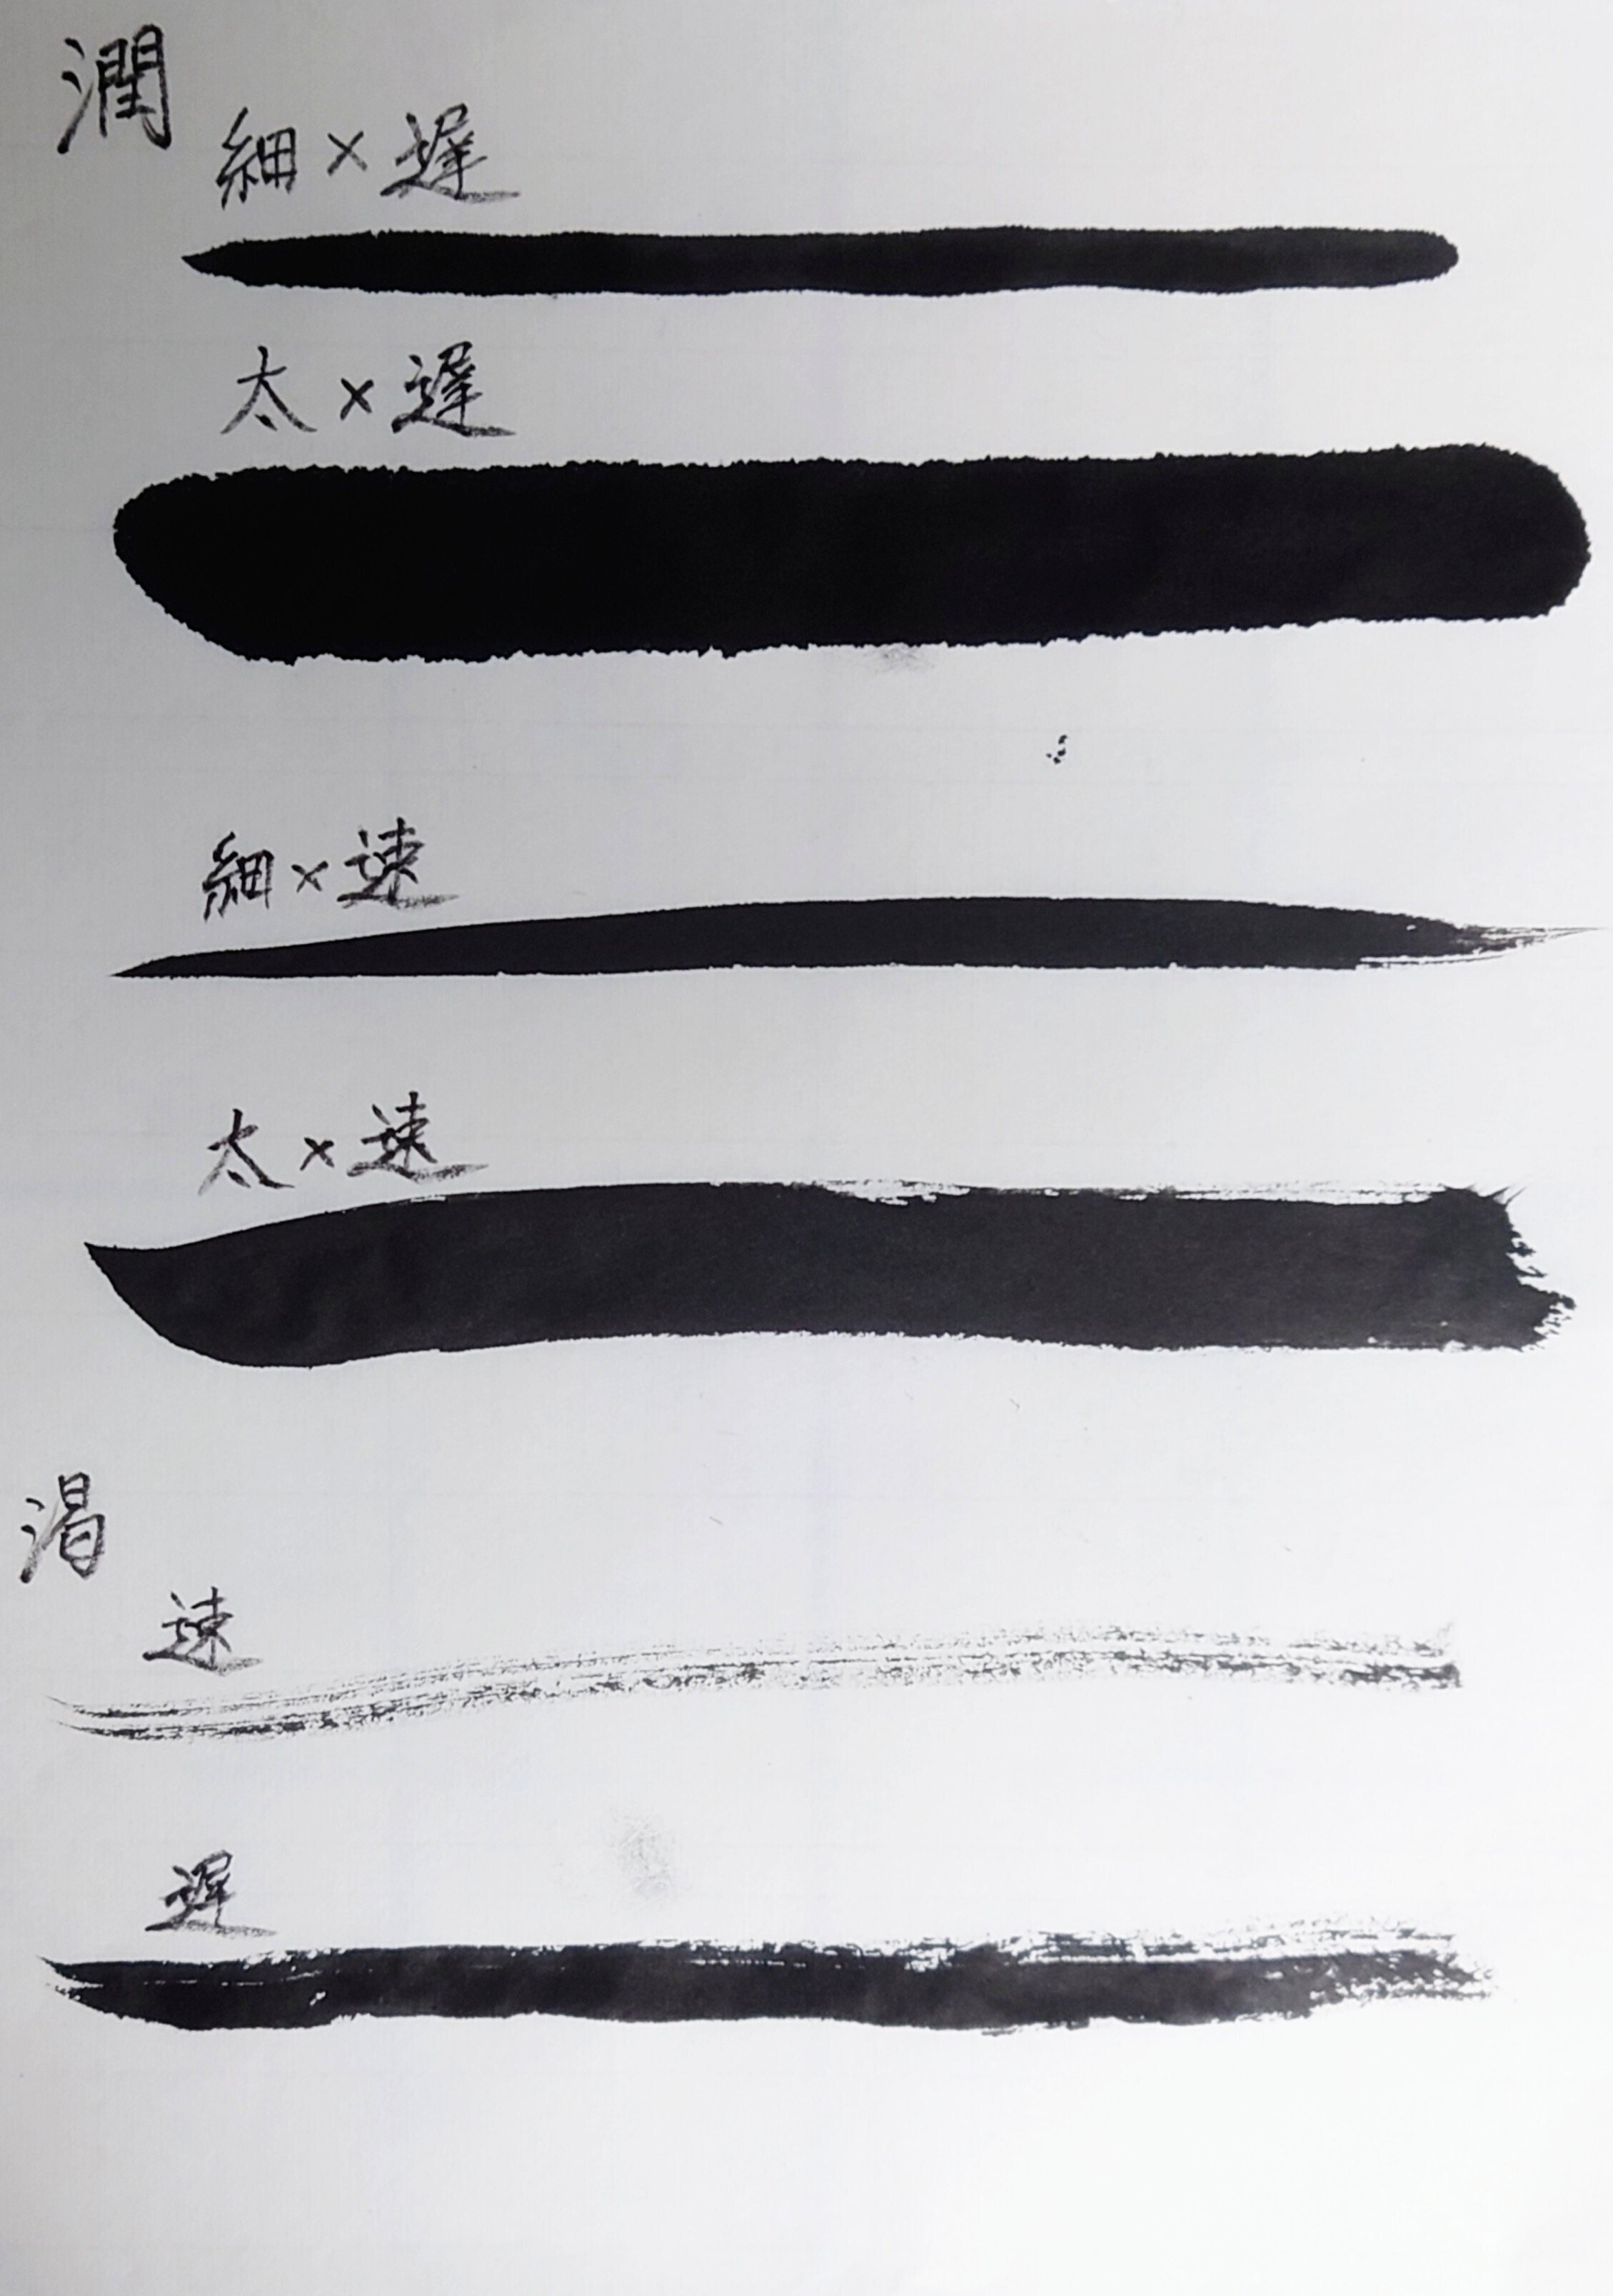 潤
細×遅
太×遅
細×速
太×速
渇
速
遅